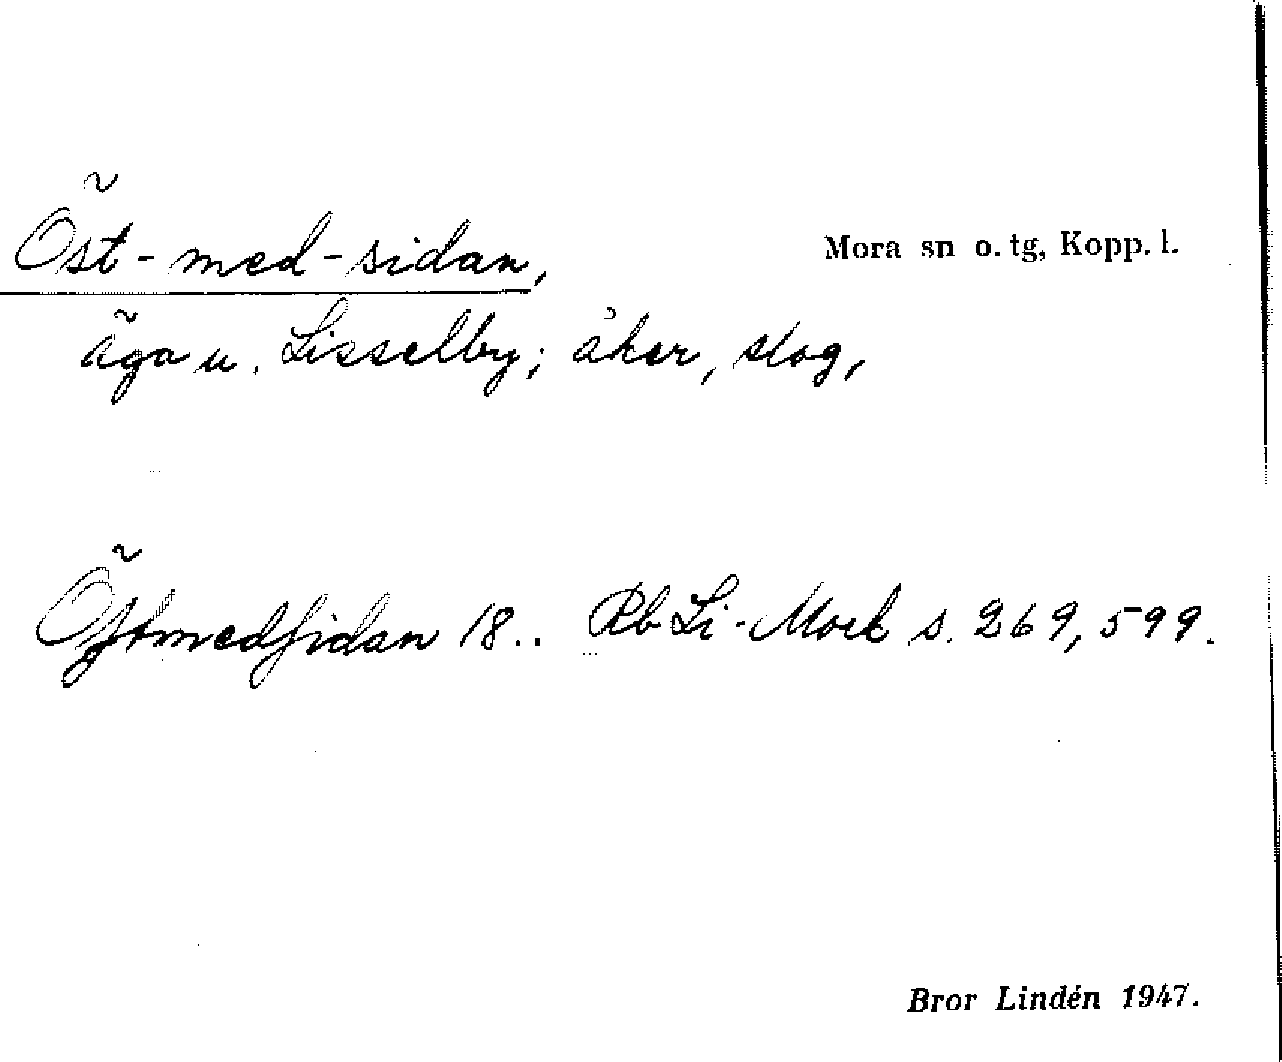 Öst-med-sidan,
Mora sn o. tg, Kopp. l.
äga u. Lisselby; åker, skog,
Östmedsidan 18.. Rb Li-Mork s. 269, 599.
Bror Lindén 1947.